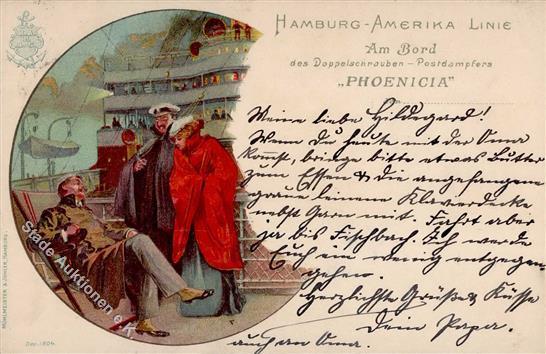 HAMBURG-AMERIKA LINIE
Am Bord
des Doppelschrauben-Postdampfers
„PHOENICIA"
Meine liebe Hildegard!
Wenn Du heute mit der Oma
komst, bringe bitte etwas Butter
zum Essen & die angefangene
graue leinene Klavierdecke
nebst Garn mit. Fahrt aber
ja bis Fischbach. Ich werde
Euch ein wenig entgegen-
gehen.
Herzlichste Grüße & Küsse
Dein Papa.
auch an Oma.
MÜHLMEISTER & JOHLER, HAMBURG.
Dep. 1804.
Stade Auktionen e.K